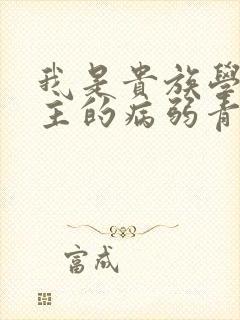 我是貴族學
主的病弱青
富成